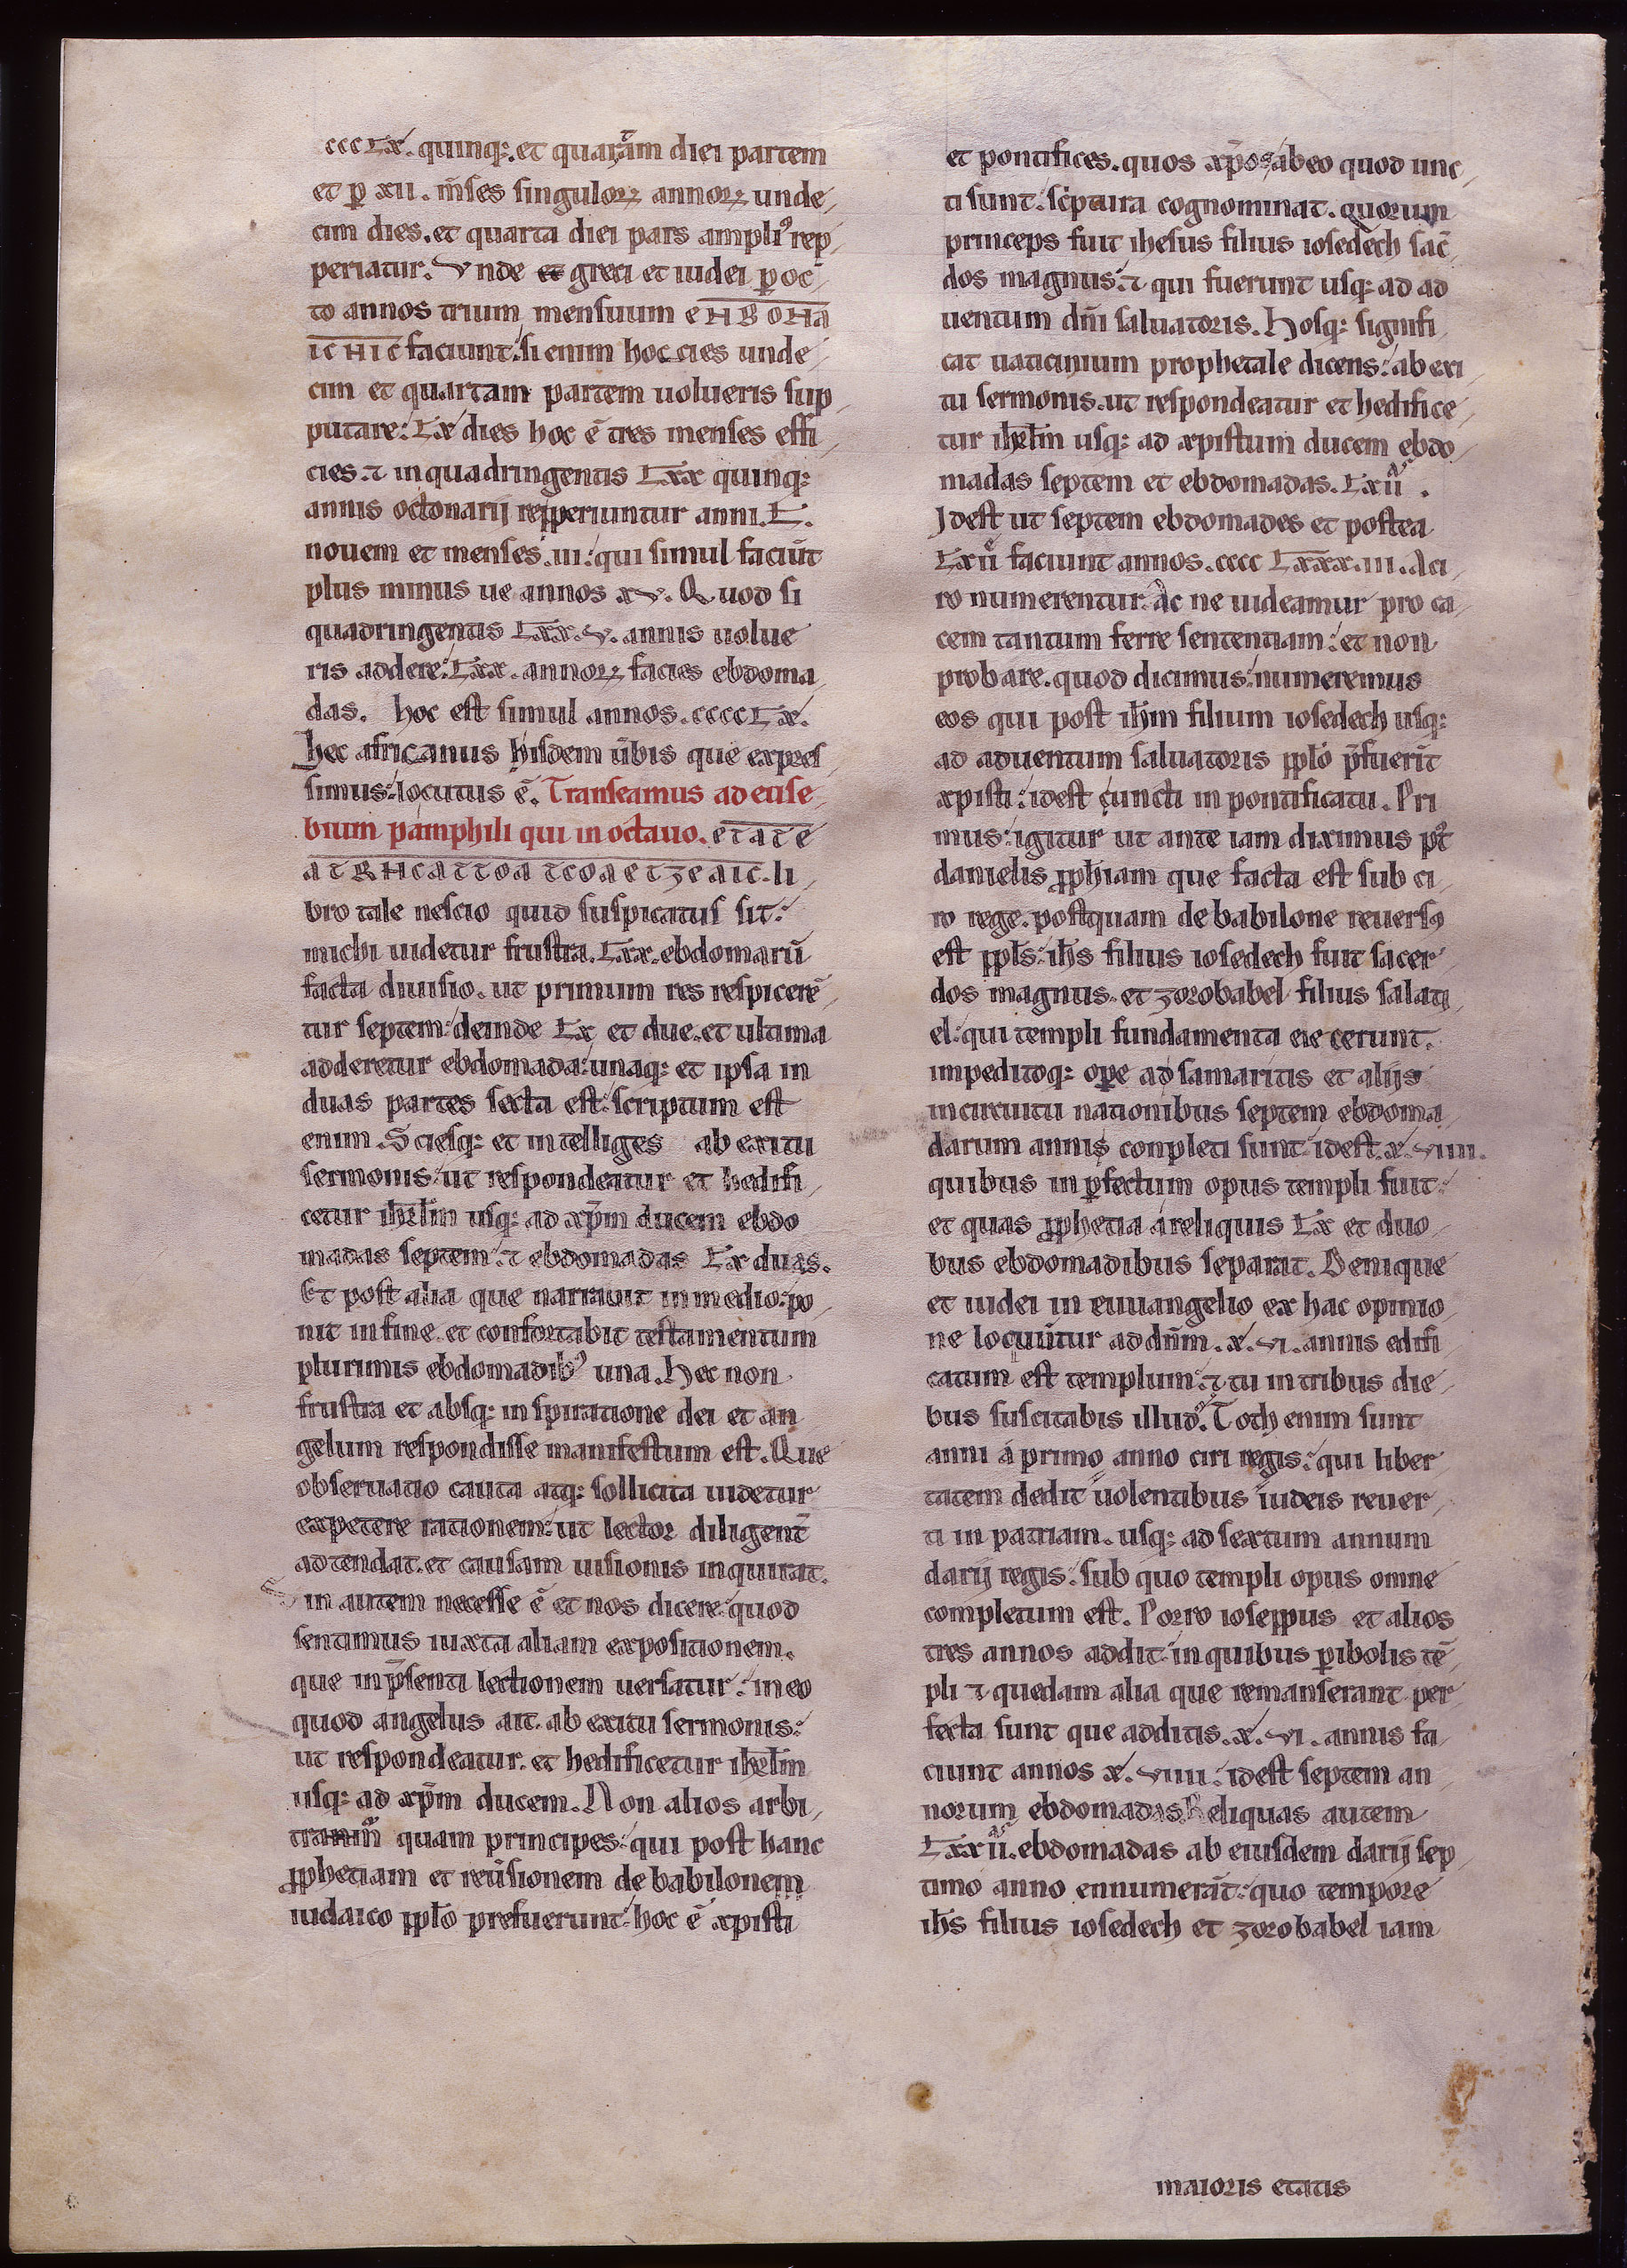 cccLx. quinq:. et quartãm diei partem
et p̲ xii. m̅ses singuloꝝ annoꝝ unde
cim dies. et quarta diei pars ampliꝰ rep
periatur. Vnde et greci et iudei p̲ oc
to annos trium mensuum eHBOHa
ICHIC faciunt: si enim hoc cies unde
cim et quartam partem uolueris sup
putare: Lx dies hoc ē tres menses effi
cies. ⁊ in quadringentis Lxx quinq:
annis octonarij repperiuntur anni. L.
nouem et menses. iii: qui simul faciūt
plus minus ue annos xv. Quod si
quadringentis Lxx.v. annis uolue
ris addere: Lxx. annoꝝ facies ebdoma
das. hoc est simul annos. ccccLx.
hec africanus hisdem ūbis que expres
simus: locutus ē. Transeamus ad euse
bium pamphili qui in octauo. etate
atRHcattoa tcoaetzeaic. li
bro tale nescio quid suspicatus sit:
michi uidetur frustra. Lxx. ebdomarū
facta diuisio. ut primum res respicerē
tur septem: deinde Lx et due. et ultima
adderetur ebdomada: unaq: et ipsa in
duas partes secta est: scriptum est
enim. Sciesq: et intelliges ab exitu
sermonis: ut respondeatur et hedifi
cetur ihrl̅m usq: ad xp̅m ducem ebdo
madas septem: ⁊ ebdomadas Lx duas.
Et post alia que narrauit in medio: po
nit in fine. et confortabit testamentum
plurimis ebdomadibꝰ una. Hec non
frustra et absq: inspiratione dei et an
gelum respondisse manifestum est. Que
obseruatio cauta atq: sollicita uidetur
expetere rationem: ut lector diligent̅
adtendat. et causam uisionis inquirat.
Sin autem necesse ē et nos dicere: quod
sentimus iuxta aliam expositionem.
que in p̅senti lectionem uersatur: in eo
quod angelus ait. ab exitu sermonis:
ut respondeatur. et hedificetur ihrl̅m
usq: ad xp̅m ducem. Non alios arbi
tramr̅ quam principes: qui post hanc
ꝓphetiam et reūsionem de babilonem
iudaico ppl̅o prefuerunt: hoc ē xpisti
et pontifices. quos xp̅os ab eo quod unc
ti sunt: sc̅ptura cognominat. quorum
princeps fuit ihesus filius iosedech sac̅
dos magnus: ⁊ qui fuerunt usq: ad ad
uentum dn̅i saluatoris. Hosq: signifi
cat uaticinium prophetale dicens: ab exi
tu sermonis. ut respondeatur et hedifice
tur ihrl̅m usq: ad xpistum ducem ebdo
madas septem et ebdomadas. Lxii.
Idest ut septem ebdomades et postea
Lxii faciunt annos. cccc Lxxx.iii. A ci
ro numerentur. Ac ne uideamur pro ca
cem tantum ferre sententiam: et non
probare. quod dicimus: numeremus
eos qui post ih̅m filium iosedech usq:
ad aduentum saluatoris ppl̅o p̅fuerīt
xpisti: idest cuncti in pontificatu. Pri
mus: igitur ut ante iam diximus p̅t
danielis ꝓphiam que facta est sub ci
ro rege. postquam de babilone reuersꝰ
est ppl̅s: ih̅s filius iosedech fuit sacer
dos magnus. et zorobabel filius salati
el: qui templi fundamenta eiecerunt.
impeditoq: op̲e ad samaritis et alijs
in circuitu nationibus septem ebdoma
darum annis conpleti sunt: idest. x.viiii.
quibus inp̲fectum opus templi fuit:
et quas ꝓphetia a reliquis Lx et duo
bus ebdomadibus separat. Denique
et iudei in euuangelio ex hac opinio
ne locuūtur ad dn̅m. x.vi. annis edifi
catum est templum: ⁊ tu in tribus die
bus suscitabis illud? Toth enim sunt
anni a primo anno ciri regis: qui liber
tatem dedit uolentibus iudeis reuer
ti in patriam. usq: ad sextum annum
darij regis: sub quo templi opus omne
completum est. Porro ioseppus et alios
tres annos addit: in quibus p̲ibolis tē
pli ⁊ quedam alia que remanserant per
fecta sunt que additis. x.vi. annis fa
ciunt annos x.viiii: idest septem an
norum ebdomadas. Reliquas autem
Lxxii. ebdomadas ab eiusdem darij sep
timo anno ennumerāt: quo tempore
ih̅s filius iosedech et zorobabel iam
maioris etatis